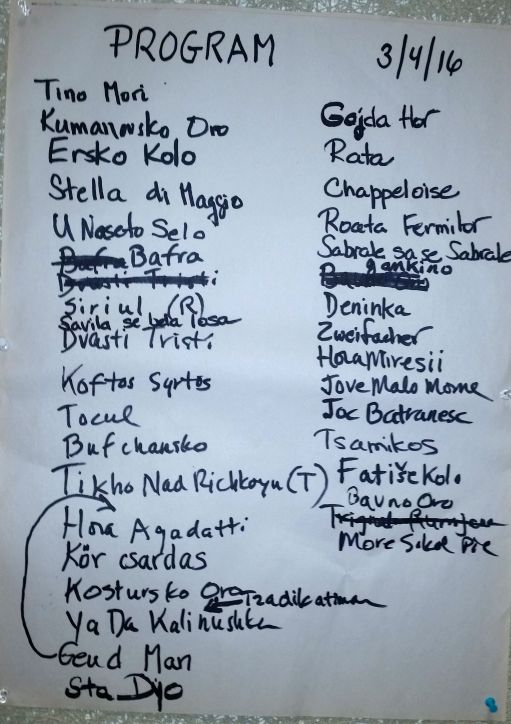 PROGRAM
3/4/16
Tino Mori
Kumanovsko Oro
Ersko Kolo
Stella di Maggio
U Naseto Selo
Bafra
Siriul (R)
Savila se bela losa
Dvasti Tristi
Koftos Syrtos
Tocul
Bufchansko
Tikho Nad Richkoyu (T)
Hora Agadatti
Kör csardas
Kostursko Oro
Tzadik atimar
Ya Da Kalinushka
Geud Man
Sta Dijo
Gojda Hor
Rata
Chappeloise
Roata Femeilor
Sabrale sa se Sabrale
gankino
Deninka
Zweifacher
Hora Miresii
Jove Malo Mome
Joc Batranesc
Tsamikos
Fatiše Kolo
Bavno Oro
More Sokol Pie